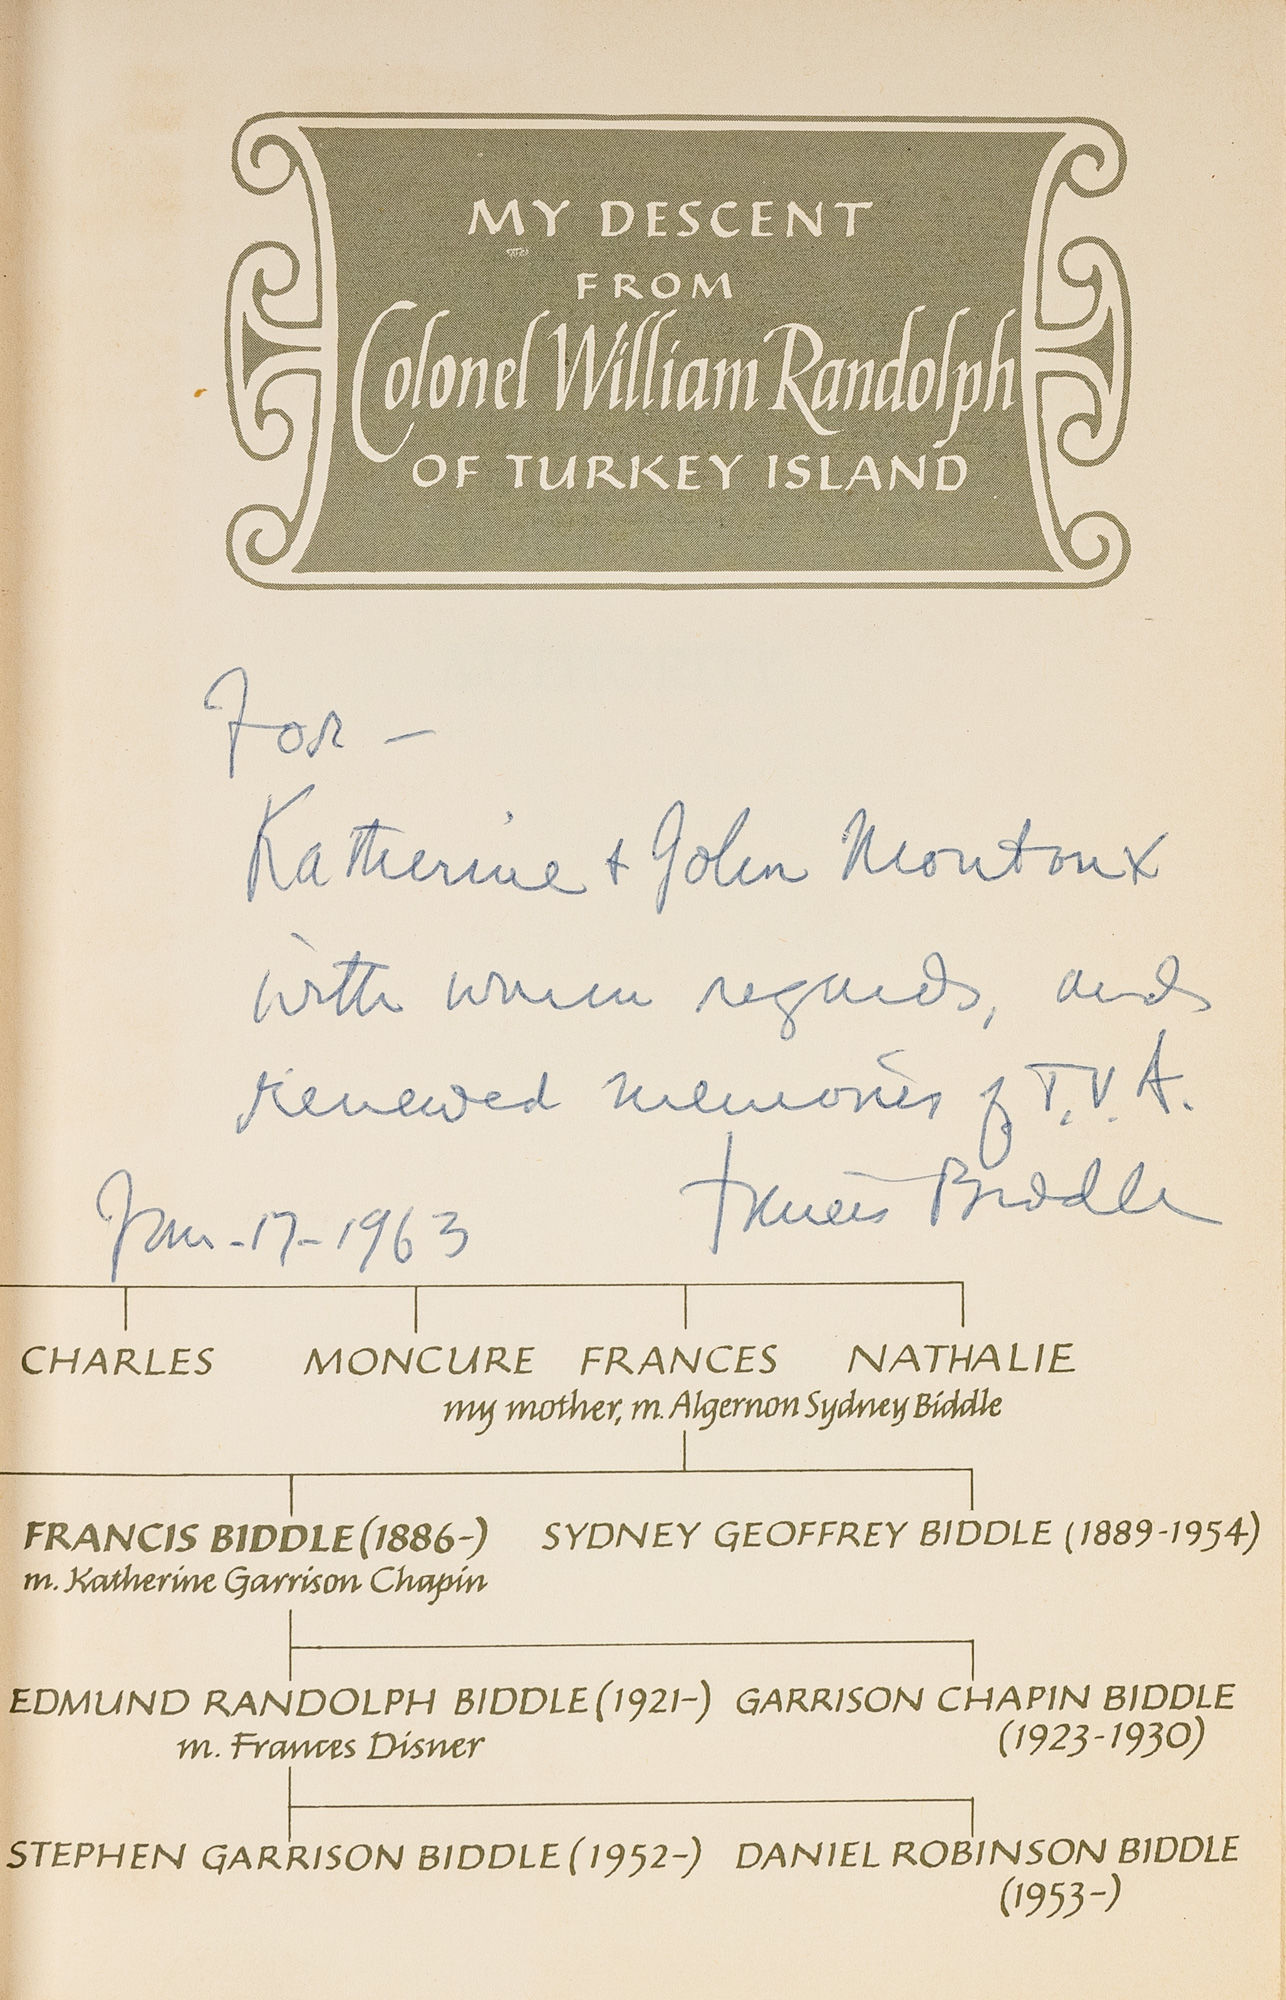 MY DESCENT
FROM
Colonel William Randolph
OF TURKEY ISLAND
For –
Katherine + John Montoux
with warm regards, and
renewed memories of T.V.A.
Francis Biddle
Jan - 17 - 1963
CHARLES MONCURE FRANCES NATHALIE
my mother, m. Algernon Sydney Biddle
FRANCIS BIDDLE (1886-) SYDNEY GEOFFREY BIDDLE (1889-1954)
m. Katherine Garrison Chapin
EDMUND RANDOLPH BIDDLE (1921-) GARRISON CHAPIN BIDDLE
m. Frances Disner (1923-1930)
STEPHEN GARRISON BIDDLE (1952-) DANIEL ROBINSON BIDDLE
(1953-)